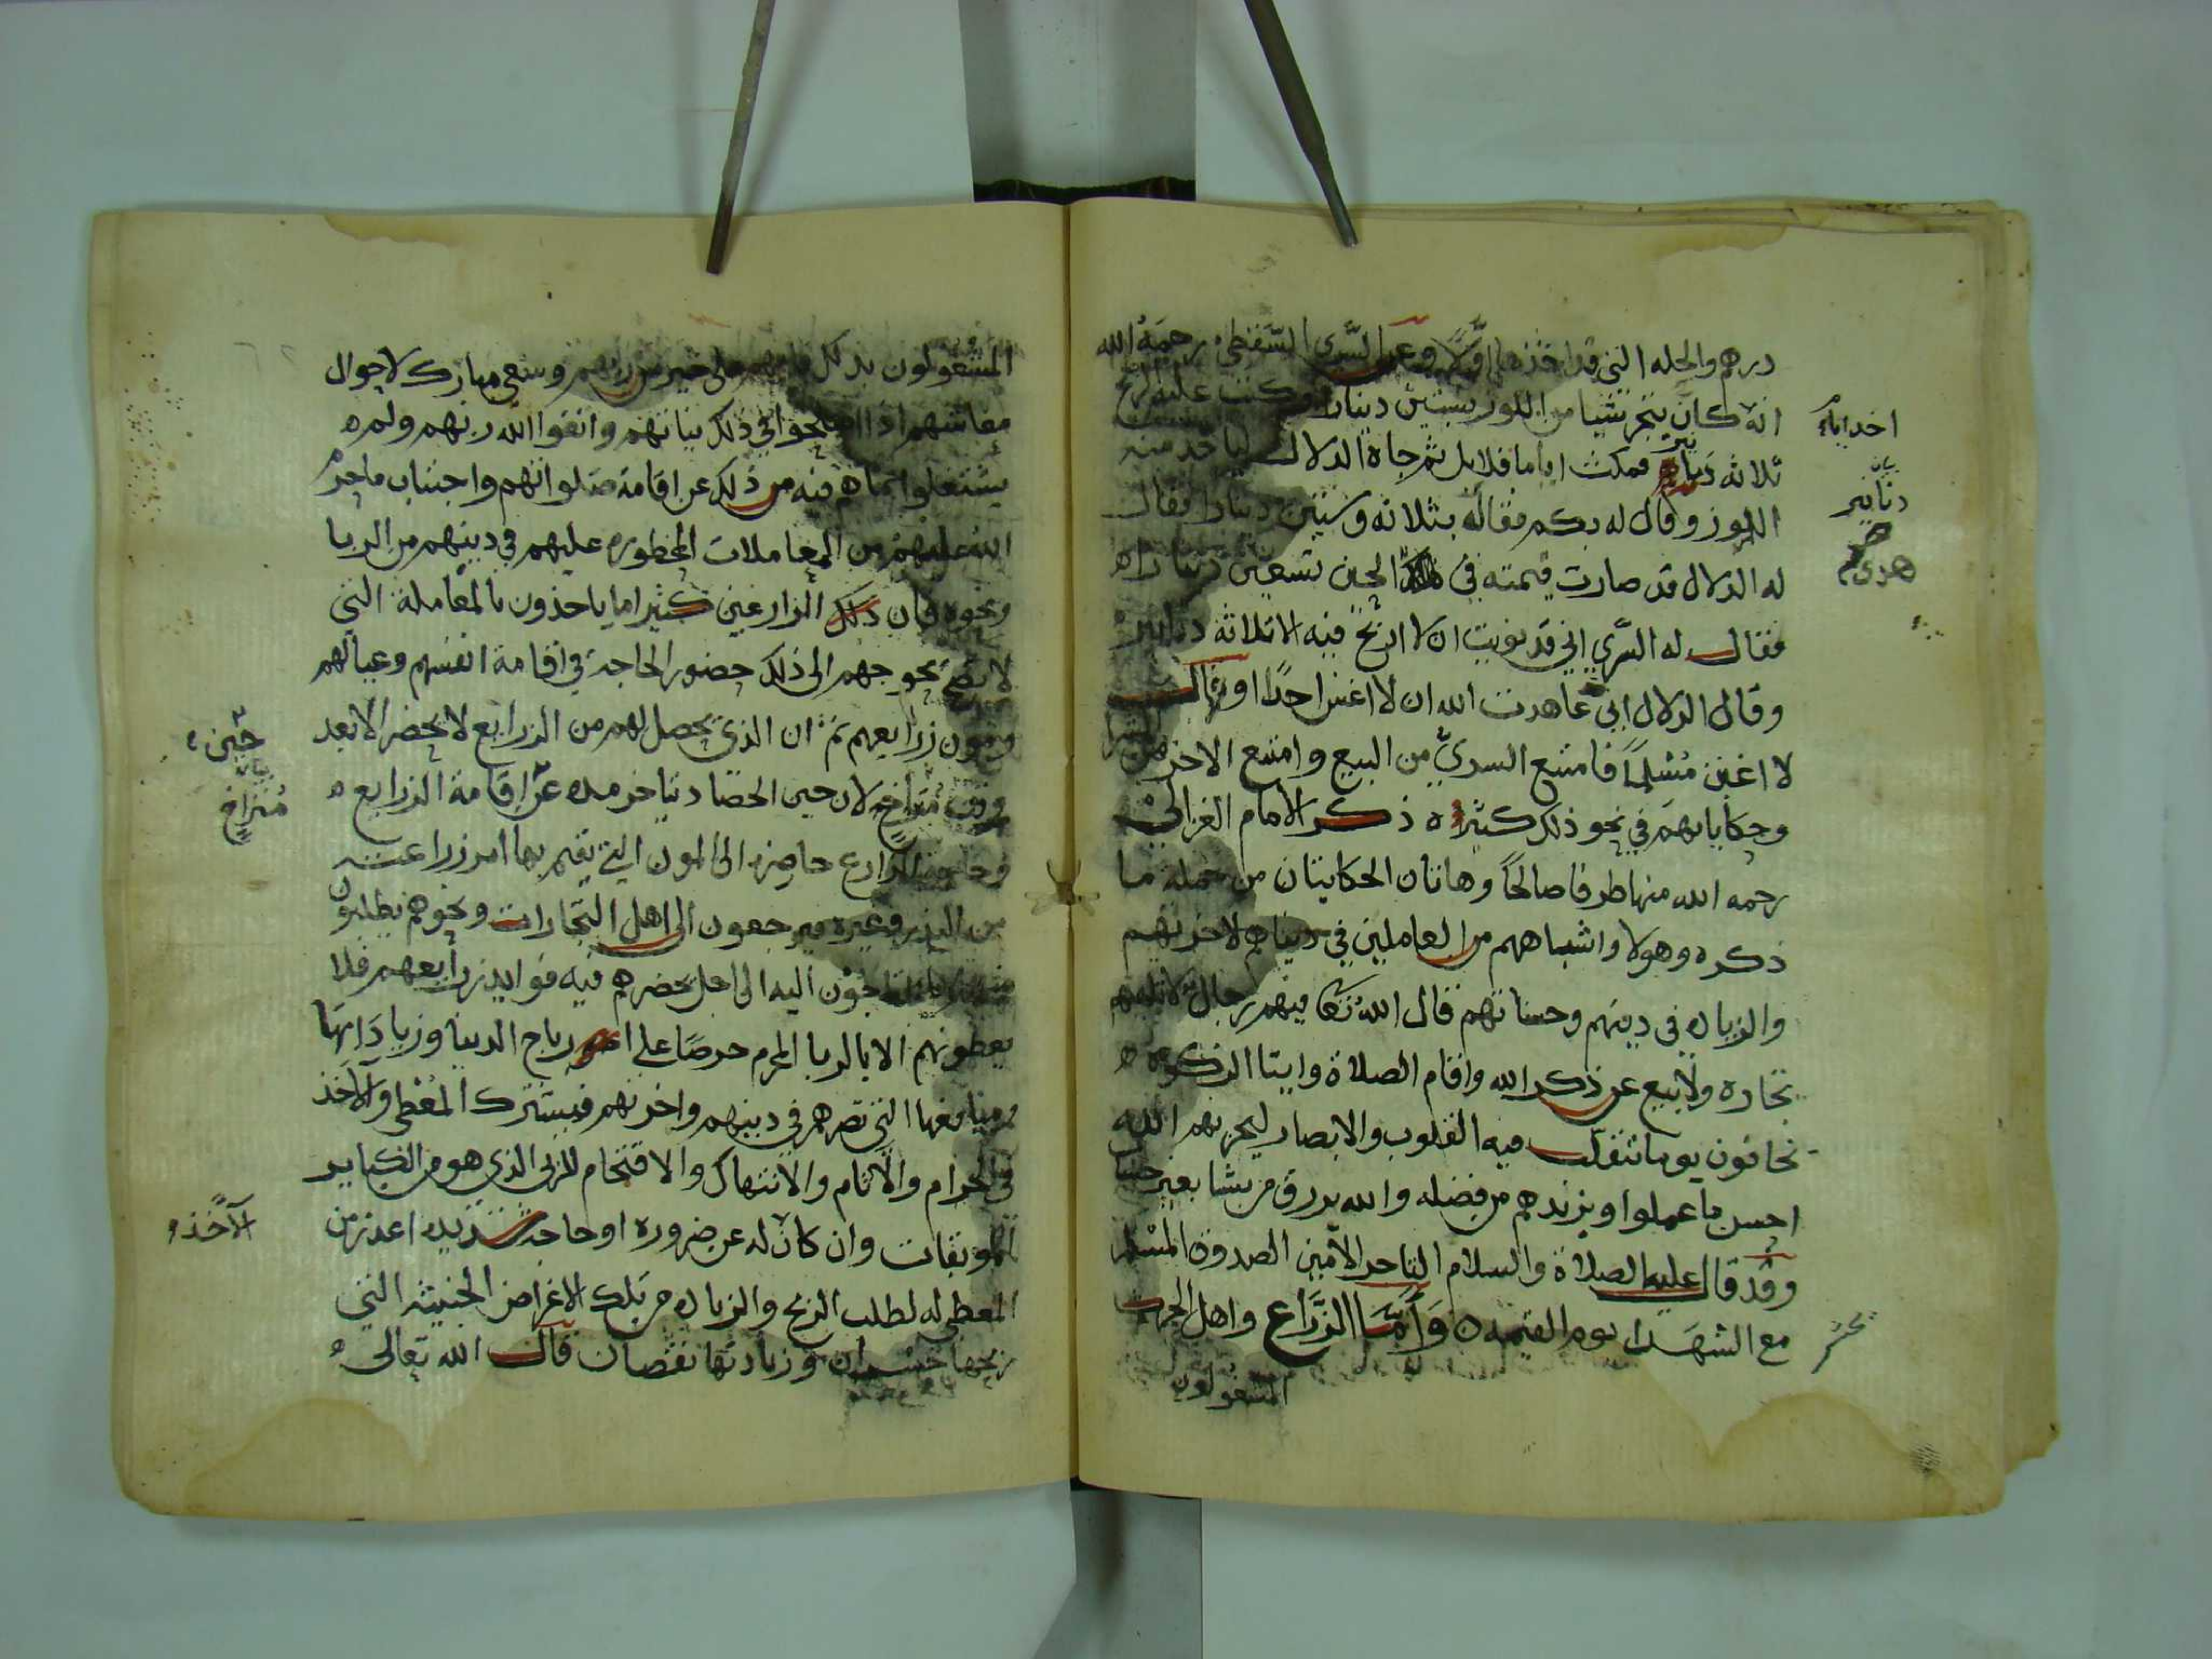 درهم والحله التي قد اخذها اولا وعن السري السقطي رحمه الله
انه كان يتجر شيا من اللوز بستين دينارا وكتب عليه ربح
ثلاثه دنانير فمكث اياما قلايل ثم جاه الدلال لياخذ منه
اللوز وقال له بكم فقال له بثلاثه وستين دينارا فقال
له الدلال قد صارت قيمته في الحين تسعين دينارا
فقال له السري اني قد نويت ان لا اربح فيه الا ثلاثه دنانير
وقال الدلال اني عاهدت الله ان لا اغبن احدا او قال
لا اغبن مسلما فامتنع السري من البيع وامتنع الاخر من الشرا
وحكاياتهم في نحو ذلك كثيره ذكر الامام الغزالي
رحمه الله منها طرفا صالحا وهاتان الحكايتان من جمله ما
ذكره وهولا واشباههم من العاملين في دنياهم لاخرتهم
والزياده في دينهم وحسناتهم قال الله تعالى فيهم رجال لا تلهيهم
تجاره ولا بيع عن ذكر الله واقام الصلاة وايتا الزكوة
يخافون يوما تتقلب فيه القلوب والابصار ليجزيهم الله
احسن ما عملوا ويزيدهم من فضله والله يرزق من يشا بغير حساب
وقد قال عليه الصلاة والسلام التاجر الامين الصدوق المسلم
مع الشهدا يوم القيمه وأمّا الزَّراع واهل الحرث
المشغولون
دنانير
هدى
المشغولون بذلك على خير من ربهم وسعي مبارك لاحوال
معاشهم اذا اصلحوا في ذلك نياتهم واتقوا الله ربهم ولم
يشتغلوا بما هم فيه من ذلك عن اقامة صلواتهم واجتناب ما حرم
الله عليهم من المعاملات المحظوره عليهم في دينهم من الربا
ونحوه فان ذلك الزارعين كثيرا ما ياخذون بالمعاملة التي
لا تصح يحوجهم الى ذلك حضور الحاجة في اقامة انفسهم وعيالهم
ومون زرايعهم ثم ان الذي يحصل لهم من الزرايع لا يحضر الا بعد
وقت متراخ لان حين الحصاد يتاخر مده عن اقامة الزرايع
وحاجة الزارع حاضره الى المون التي يقيم بها امر زراعته
من البذر وغيره فيرجعون الى اهل التجارات ونحوهم يطلبون
منهم ما يحتاجون اليه الى اجل يحضرهم فيه فوايد زرايعهم فلا
يعطونهم الا بالربا المحرم حرصا على ارباح الدنيا وزياداتها
ومنافعها التي تضرهم في دينهم واخرتهم فيشترك المعطي والآخذ
في الحرام والآثام والانتهاك والاقتحام للربى الذي هو من الكباير
الموبقات وان كان له عن ضروره او حاجة شديده اعذر من
المعطي له لطلب الربح والزياده من تلك الاغراض الخبيثه التي
ربحها خسران وزيادتها نقصان قال الله تعالى
حين
بيان
متراخ
الآخذ